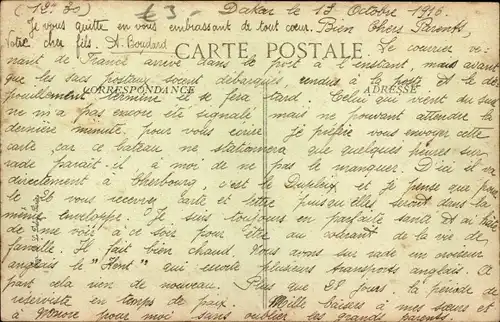 (12h30) £3- Dakar le 13 Octobre 1916
Je vous quitte en vous embrassant de tout cœur. Bien Chers Parents,
Votre cher fils. A. Boudard Le courrier ve-
CARTE POSTALE
nant de France arrive dans le port à l'instant, mais avant
que les sacs postaux soient débarqués, rendus à la poste et le dé-
CORRESPONDANCE ADRESSE
pouillement terminé il se fera tard. Celui qui vient du sud
ne m'a pas encore été signalé, mais ne pouvant attendre la
dernière minute, pour vous écrire je préfère vous envoyer cette
carte, car ce bateau ne stationnera que quelques heures sur
rade paraît-il à moi de ne pas le manquer. D'ici il va
directement à Cherbourg, c'est le Dupleix et je pense que par
le vous recevrez carte et lettre puisqu'elles seront dans la
même enveloppe. Je suis toujours en parfaite santé et ai hâte
de me voir à ce soir pour être au courant de la vie de
famille. Il fait bien chaud. Nous avons sur rade un croiseur
anglais le "Kent" qui escorte plusieurs transports anglais. A
part cela rien de nouveau. Plus que 28 jours la période de
réserviste en temps de paix. Mille baisers à mes sœurs et
à pour moi sans oublier les grands parents.